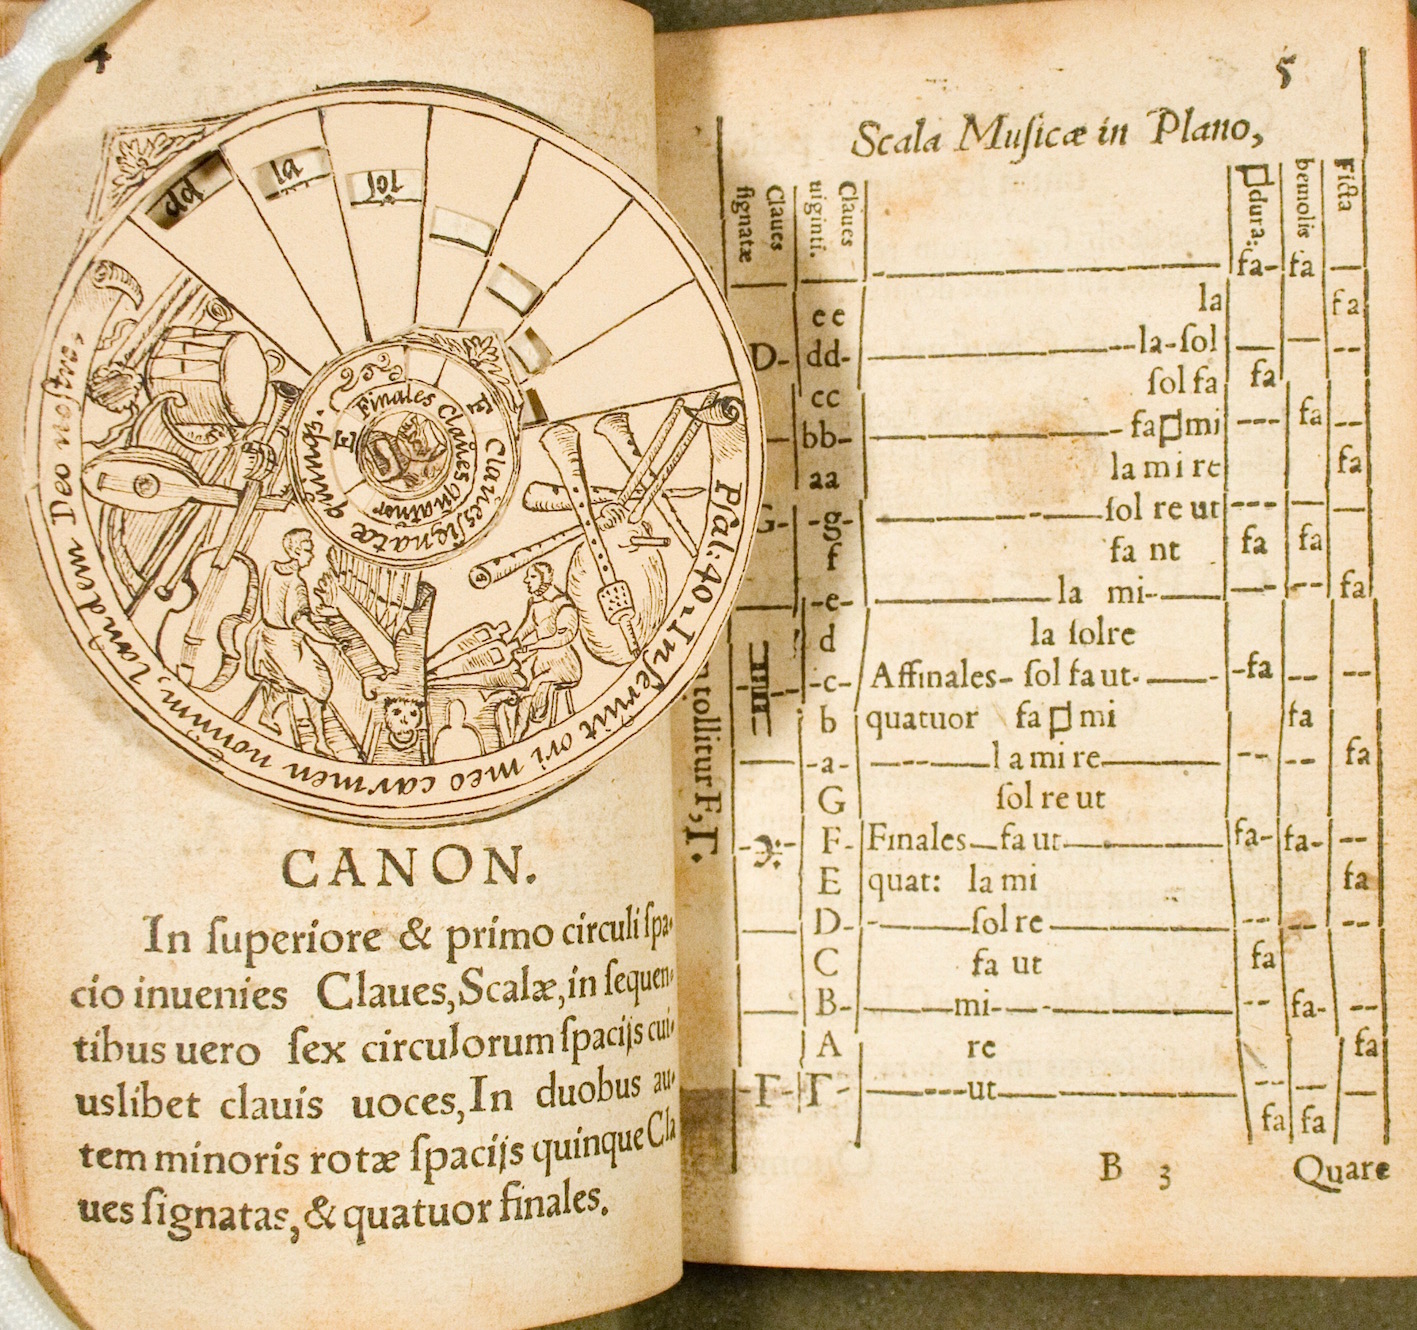 4
dd
la
sol
Finales Claues quatuor
Claues signatæ quinqȝ.
F
E
Psal: 40. Inseruit ori meo carmen nouum, laudem Deo nostro,
CANON.
In superiore & primo circuli spa-
cio inuenies Claues, Scalæ, in sequen-
tibus uero sex circulorum spacijs cui-
uslibet clauis uoces, In duobus au-
tem minoris rotæ spacijs quinque Cla
ues signatas, & quatuor finales.
tollitur F, Γ.
5
Scala Musicæ in Plano,
Claues signatæ
Claues uiginti.
♮dura.
bemolis
Ficta
fa- fa
ee la fa
D- dd- la-sol
cc sol fa fa
bb- fa♮mi fa
aa la mi re fa
G- -g- sol re ut
f fa nt fa fa
-e- la mi- fa
d la solre
-c- Affinales- sol fa ut. -fa
b quatuor fa♮mi fa
-a- la mi re fa
G sol re ut
F- Finales fa ut fa- fa-
E quat: la mi fa
D- sol re
C fa ut fa
B- mi- fa-
A re fa
-Γ- Γ- ut
fa fa
B 3 Quare